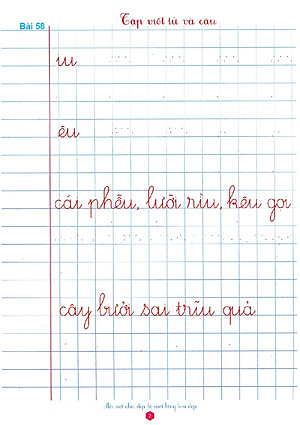 Tập viết từ và câu
Bài 58
iu
êu
cái phễu, lưỡi rìu, kêu gọi
cây bưởi sai trĩu quả
2